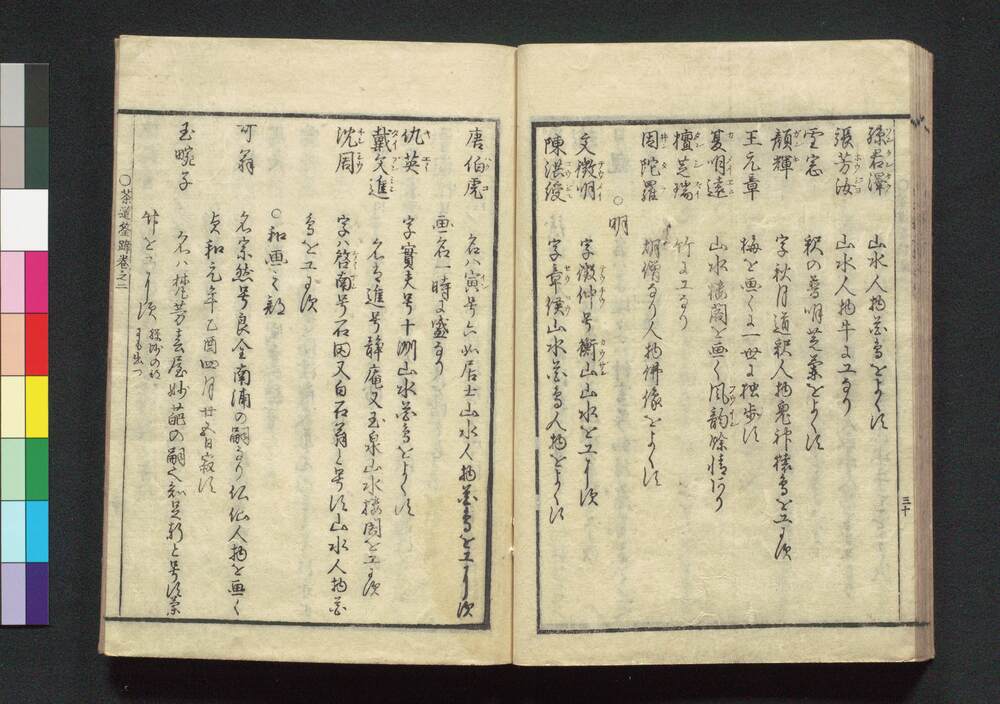 孫君澤 山水人物花鳥をよくす
張芳汝 山水人物牛に工なり
雪窓 釈の普明芝蘭をよくす
顔輝 字秋月道釈人物鬼神猿鳥を工にす
王元章 梅を画くに一世に独歩す
夏明遠 山水楼閣を画く風韵餘情あり
檀芝瑞 竹に工なり
因陀羅 胡僧なり人物佛像をよくす
○明
文徴明 字徴仲号衡山山水を工にす
陳洪綬 字章侯山水花鳥人物をよくす
三十
唐伯虎 名ハ寅号六如居士山水人物花鳥を工にす
画名一時に盛なり
仇英 字實夫号十洲山水花鳥をよくす
戴文進 名ハ進号静庵又玉泉山水楼閣を工にす
沈周 字ハ啓南号石田又白石翁と号す山水人物花
鳥を工にす
○和画之部
可翁 名宗然号良全南浦の嗣なり仏仙人物を画く
貞和元年乙酉四月廿五日寂す
玉畹子 名ハ梵芳春屋妙葩の嗣也知足軒と号す蘭
竹を工にす
○茶道筌蹄巻之二